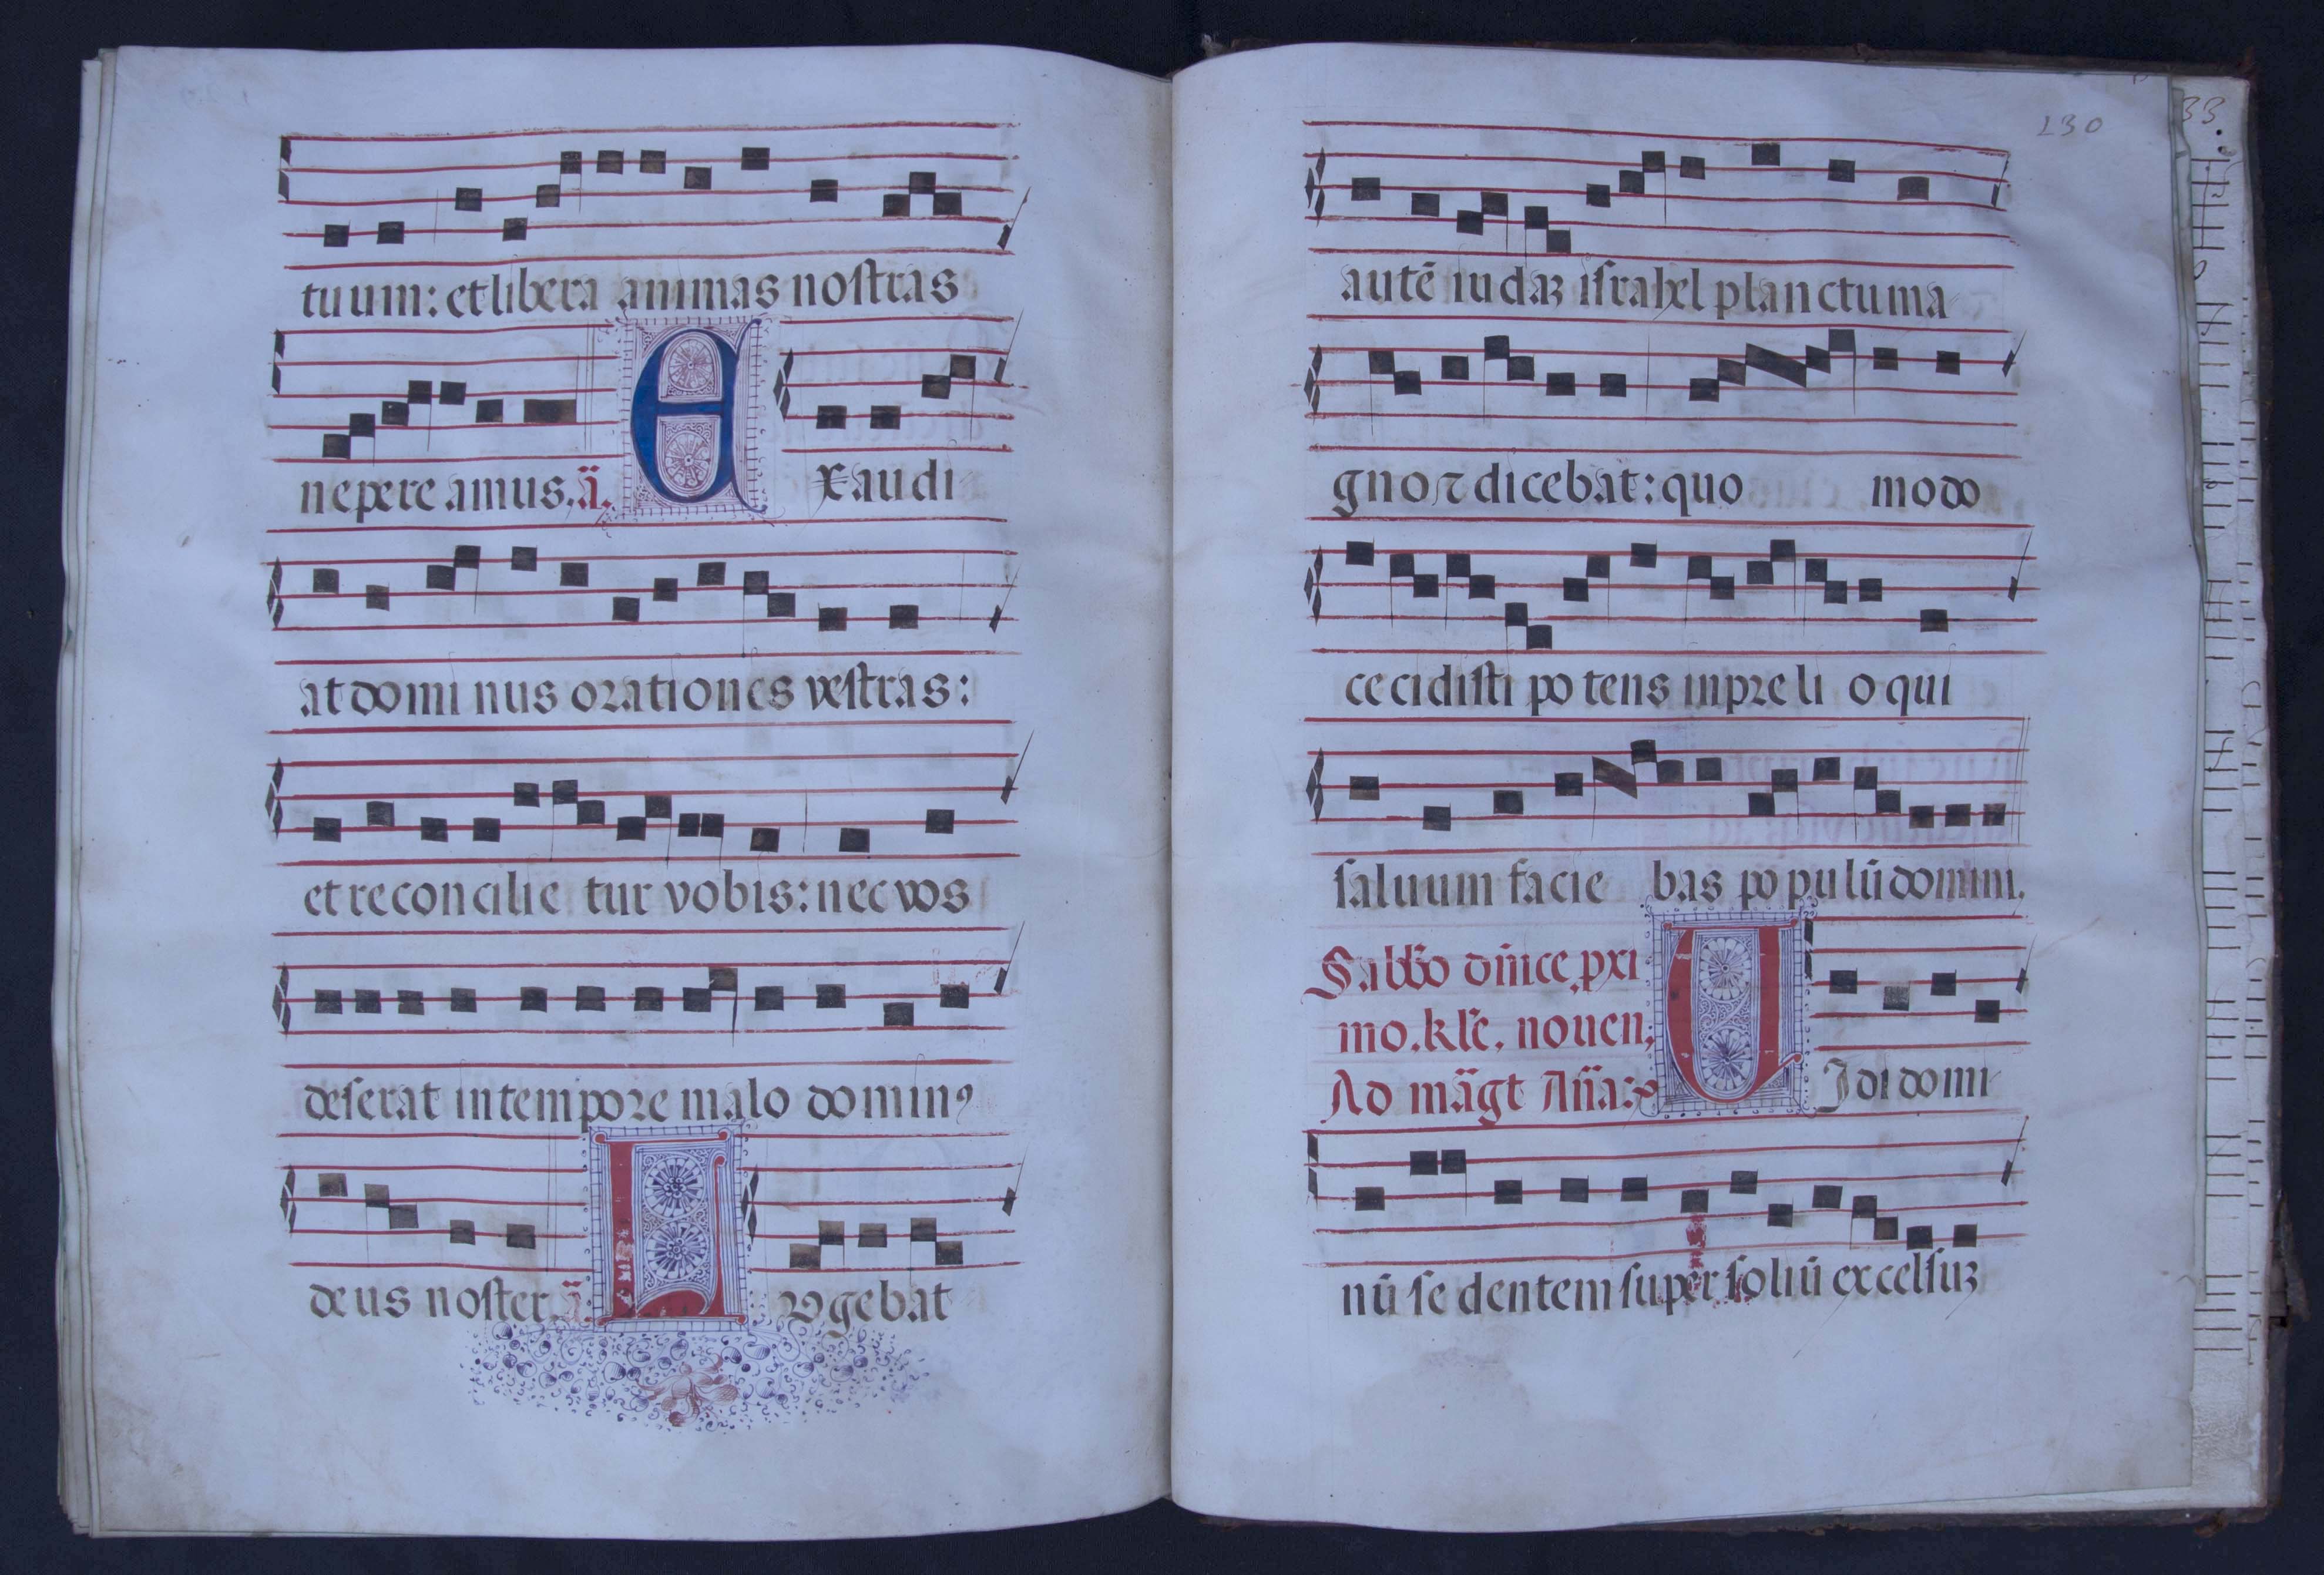 tuum: et libera animas noſtras
ne pereamus. ã. Exaudi
at dominus orationes veſtras:
et reconcilietur vobis: nec vos
deſerat in tempore malo dominꝯ
deus noſter. ã. Lvgebat
130
33
autē iudaꝫ iſrahel planctu ma
gno ⁊ dicebat: quo modo
cecidiſti potens in prelio qui
ſaluum faciebas populū domini.
Sabb̄o dn̄ice pxi
mo. kl̄e. nouen;
Ad māgt An̄a: VJdi domi
nū ſedentem ſuper ſoliū excelſuꝫ